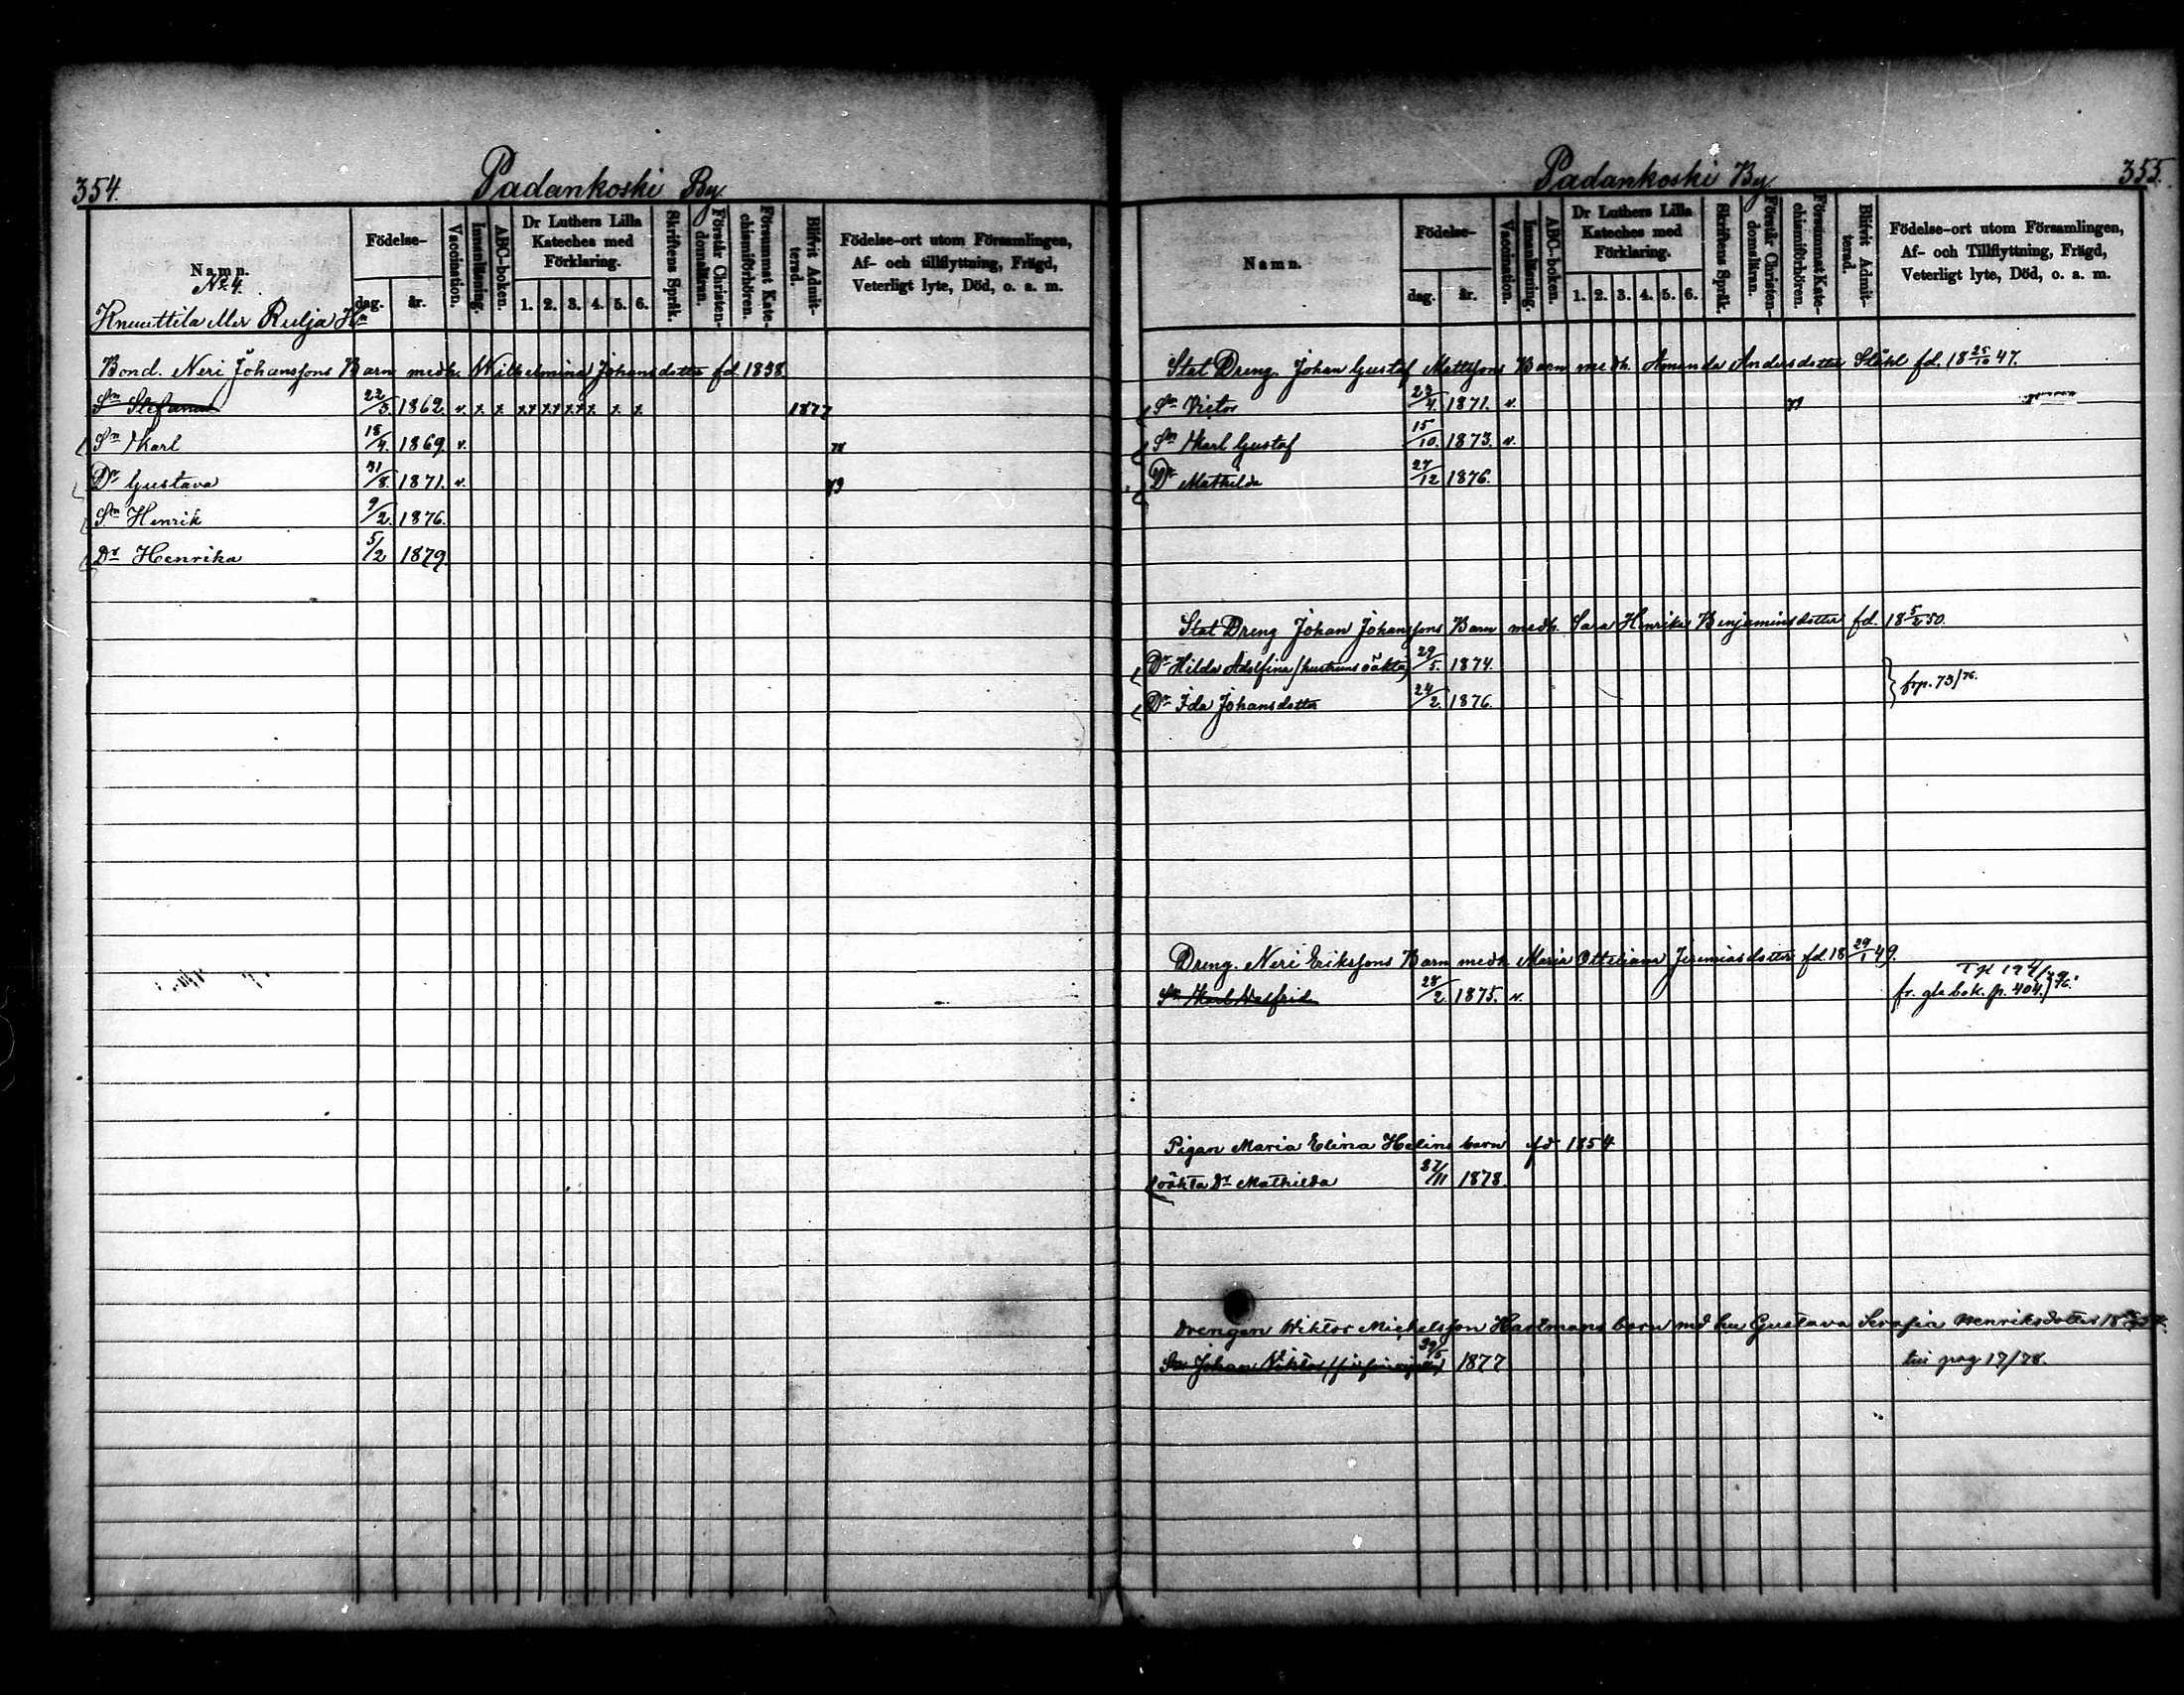 354.
Padankoski By
Namn.
Födelse-
dag.
år.
Vaccination.
Innanläsning.
ABC-boken.
Dr Luthers Lilla
Kateches med
Förklaring.
1. 2. 3. 4. 5. 6.
Skriftens Språk.
Förstår Christen-
domsläran.
Försummat Kate-
chismiförhören.
Blifvit Admit-
terad.
Födelse-ort utom Församlingen,
Af- och tillflyttning, Frägd,
Veterligt lyte, Död, o. a. m.
No 4.
Knuuttila eller Rulja Hn
Bond. Neri Johanssons Barn medh. Wilhelmina Johansdotter fd. 1838.
Sn Stefanus 22/3 1862. v. x x xx xx xx x x x 1877
Sn Karl 18/4. 1869. v. 78
Dr Gustava 31/8. 1871. v. 79
Sn Henrik 9/2. 1876.
Dr Henrika 5/2 1879.
Padankoski By.
355.
Namn.
Födelse-
dag.
år.
Vaccination.
Innanläsning.
ABC-boken.
Dr Luthers Lilla
Kateches med
Förklaring.
1. 2. 3. 4. 5. 6.
Skriftens Språk.
Förstår Christen-
domsläran.
Försummat Kate-
chismiförhören.
Blifvit Admit-
terad.
Födelse-ort utom Församlingen,
Af- och Tillflyttning, Frägd,
Veterligt lyte, Död, o. a. m.
Stat Dreng Johan Gustaf Mattssons Barn medh. Amanda Andersdotter Ståhl fd. 18 25/10 47.
Sn Victor 23/4. 1871. v. 79
Sn Karl Gustaf 15/10. 1873. v.
Dr Mathilda 27/12 1876.
Stat Dreng Johan Johanssons Barn medh. Sara Henrika Benjaminsdotter fd. 18 5/2 50.
Dr Hilda Adolfina (hustruns oäkta) 29/5. 1874.
frp. 73/76.
Dr Ida Johansdotter 24/2. 1876.
Dreng. Neri Erikssons Barn medh. Maria Ottiliana Jeremiasdotter fd. 18 29/1 49.
Sn Karl Walfrid 28/2. 1875. v. fr. gla bok. p. 404. 76.
Pigan Maria Elina Helins barn fd 1854
oäkta Dr Mathilda 27/11 1878.
Drengen Wiktor Michelsson Hartmans barn md hu Gustava Serafia Henriksdotter
Sn Johan Viktor 1877 till pag 17/78.